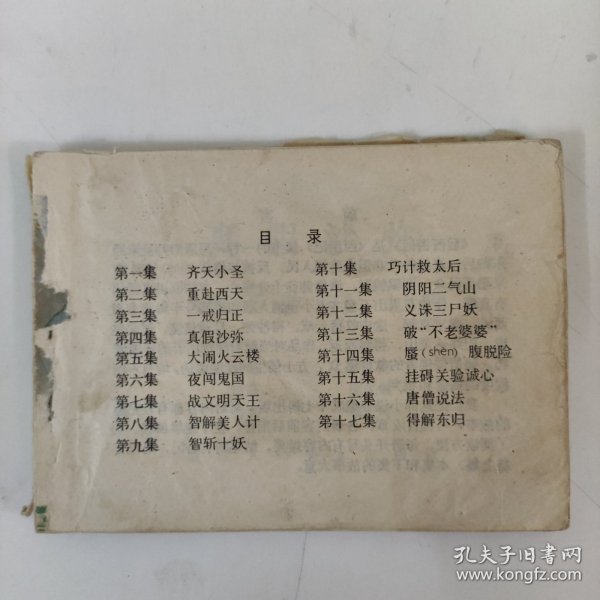 目 录
第一集 齐天小圣
第二集 重赴西天
第三集 一戒归正
第四集 真假沙弥
第五集 大闹火云楼
第六集 夜闯鬼国
第七集 战文明天王
第八集 智解美人计
第九集 智斩十妖
第十集 巧计救太后
第十一集 阴阳二气山
第十二集 义诛三尸妖
第十三集 破“不老婆婆”
第十四集 蜃(shèn)腹脱险
第十五集 挂碍关验诚心
第十六集 唐僧说法
第十七集 得解东归
孔夫子旧书网
www.kongfz.com